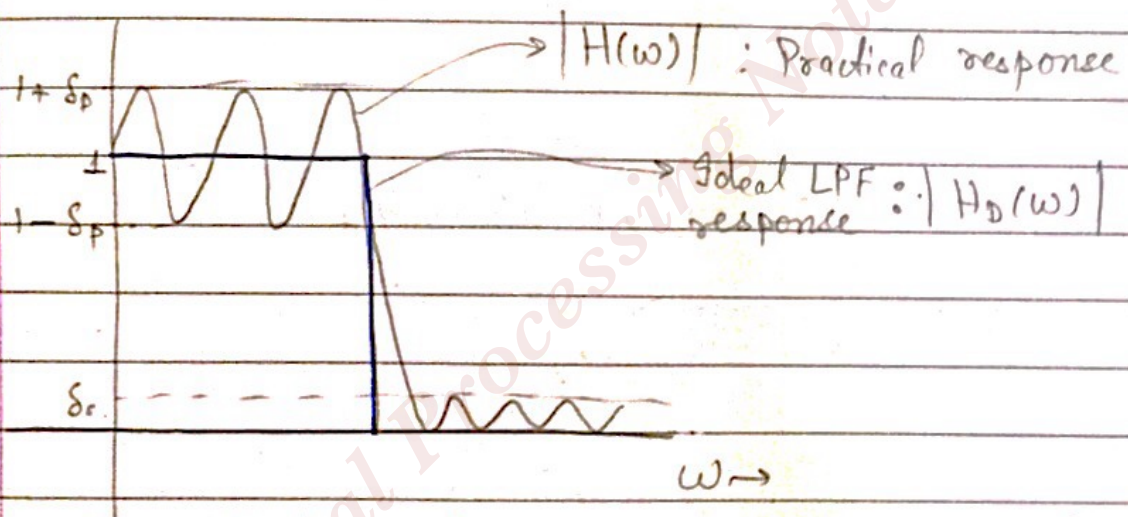 |H(ω)| : Practical response
1 + δp
1
Ideal LPF : |H_D(ω)|
response
1 - δp
δs
ω→
al Processing Not